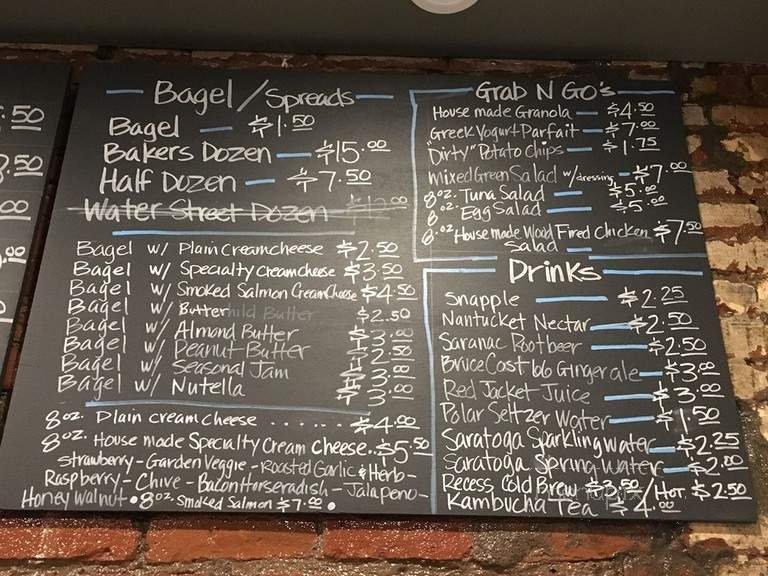 .50
3.50
.00
.00
Bagel / Spreads
Bagel — $1.50
Bakers Dozen — $15.00
Half Dozen — $7.50
Water Street Dozen
Bagel w/ Plain Creamcheese $2.50
Bagel w/ Specialty creamcheese $3.50
Bagel w/ Smoked Salmon CreamCheese $4.50
Bagel w/ Butter $2.50
Bagel w/ Almond Butter $3.00
Bagel w/ Peanut Butter $2.50
Bagel w/ Seasonal Jam $3.00
Bagel w/ Nutella $3.00
8oz. Plain cream cheese ...... $4.00
8oz. House made Specialty Cream Cheese.. $5.50
strawberry - Garden Veggie - Roasted Garlic & Herb -
Raspberry - Chive - Bacon Horseradish - Jalapeno -
Honey Walnut • 8oz. Smoked Salmon $7.00 •
Grab N Go's
House made Granola — $4.50
Greek Yogurt Parfait — $7.00
"Dirty" Potato Chips — $1.75
Mixed Green Salad w/dressing - $7.00
8oz. Tuna Salad — $5.00
8oz. Egg Salad — $5.00
8oz. House made Wood Fired Chicken $7.50
Salad
Drinks
Snapple — $2.25
Nantucket Nectar — $2.50
Saranac Rootbeer — $2.50
Bruce Cost Ginger ale — $3.00
Red Jacket Juice — $3.00
Polar Seltzer Water — $1.50
Saratoga Sparkling water — $2.25
Saratoga Spring Water — $2.00
Recess Cold Brew $3.50 / Hot $2.50
Kombucha Tea $4.00